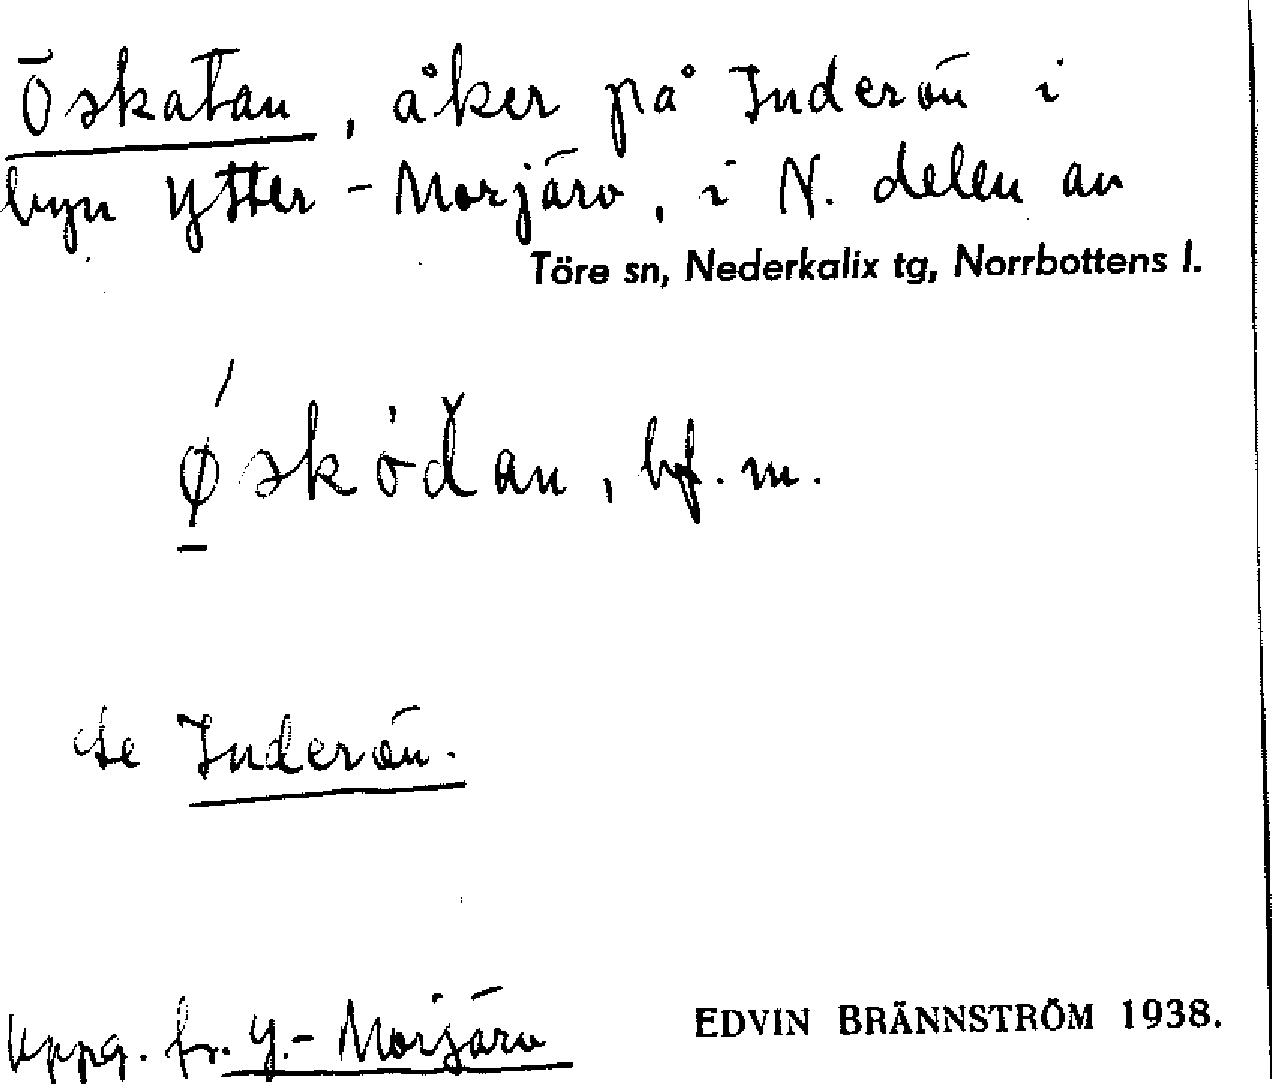 Öskatan, åker på Inderön i
byn Ytter-Morjärv, i N. delen av
Töre sn, Nederkalix tg, Norrbottens l.
bf. m.
Se Inderön.
Uppg. fr. Y.-Morjärv
EDVIN BRÄNNSTRÖM 1938.